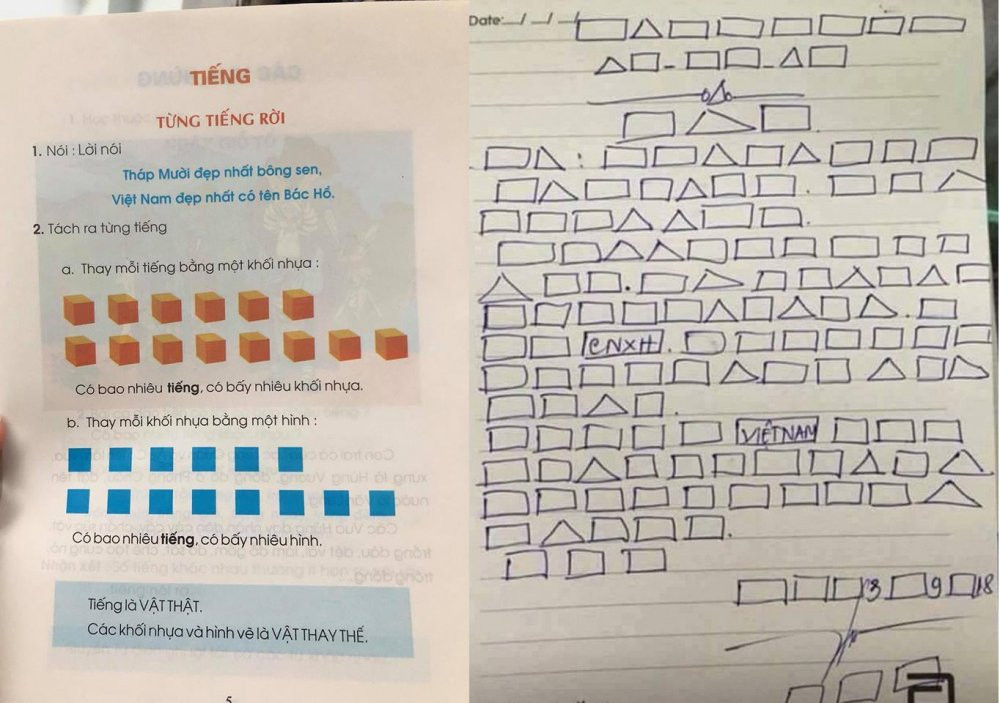 TIẾNG
TỪNG TIẾNG RỜI
1. Nói : Lời nói
Tháp Mười đẹp nhất bông sen,
Việt Nam đẹp nhất có tên Bác Hồ.
2. Tách ra từng tiếng
a. Thay mỗi tiếng bằng một khối nhựa :
Có bao nhiêu tiếng, có bấy nhiêu khối nhựa.
b. Thay mỗi khối nhựa bằng một hình :
Có bao nhiêu tiếng, có bấy nhiêu hình.
Tiếng là VẬT THẬT.
Các khối nhựa và hình vẽ là VẬT THAY THẾ.
5
Date: / /
CNXH
VIỆT NAM
3 9 18